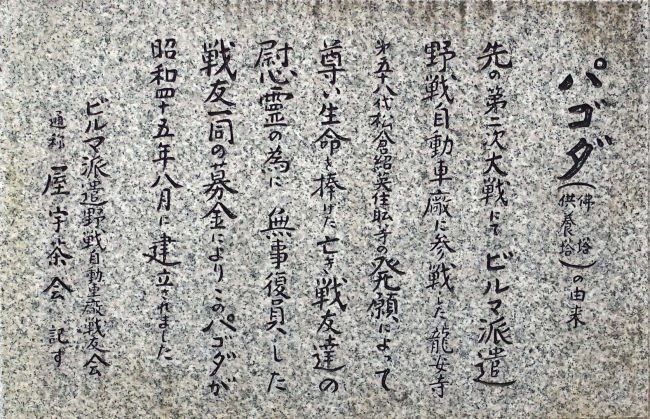 パゴダ(佛塔 供養塔)の由来
先の第二次大戦にて ビルマ派遣
野戦自動車廠に参戦した龍安寺
第五十八代松倉紹英住職等の発願によって
尊い生命を捧げた亡き戦友達の
慰霊の為に 無事復員した
戦友一同の募金によりこのパゴダが
昭和四十五年八月に建立されました
ビルマ派遣野戦自動車廠戦友会
通称 屋宇茶会 記す